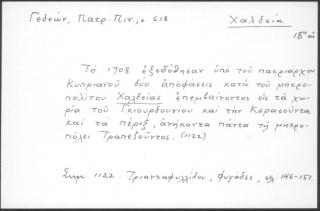 Γεδεών, Πατρ. Πιν., σ. 618
Χαλδεία
18ος αἰ
Τὸ 1708 ἐξεδόθησαν ὑπὸ τοῦ πατριάρχου
Κυπριανοῦ δύο ἀποφάσεις κατὰ τοῦ μητρο-
πολίτου Χαλδείας ἐπεμβαίνοντος εἰς τὰ χω-
ρία τοῦ Γκιουρδουνίου καὶ τὴν Κερασοῦντα
καὶ τὰ πέριξ, ἀνήκοντα πάντα τῇ μητρο-
πόλει Τραπεζοῦντος. (1122)
Σημ 1122. Τριανταφυλλίδου, Φυγάδες, σελ. 146-151.